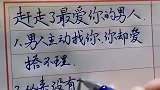 赶走了最爱你的男人
1.男人主动找你、你却爱
搭不理.